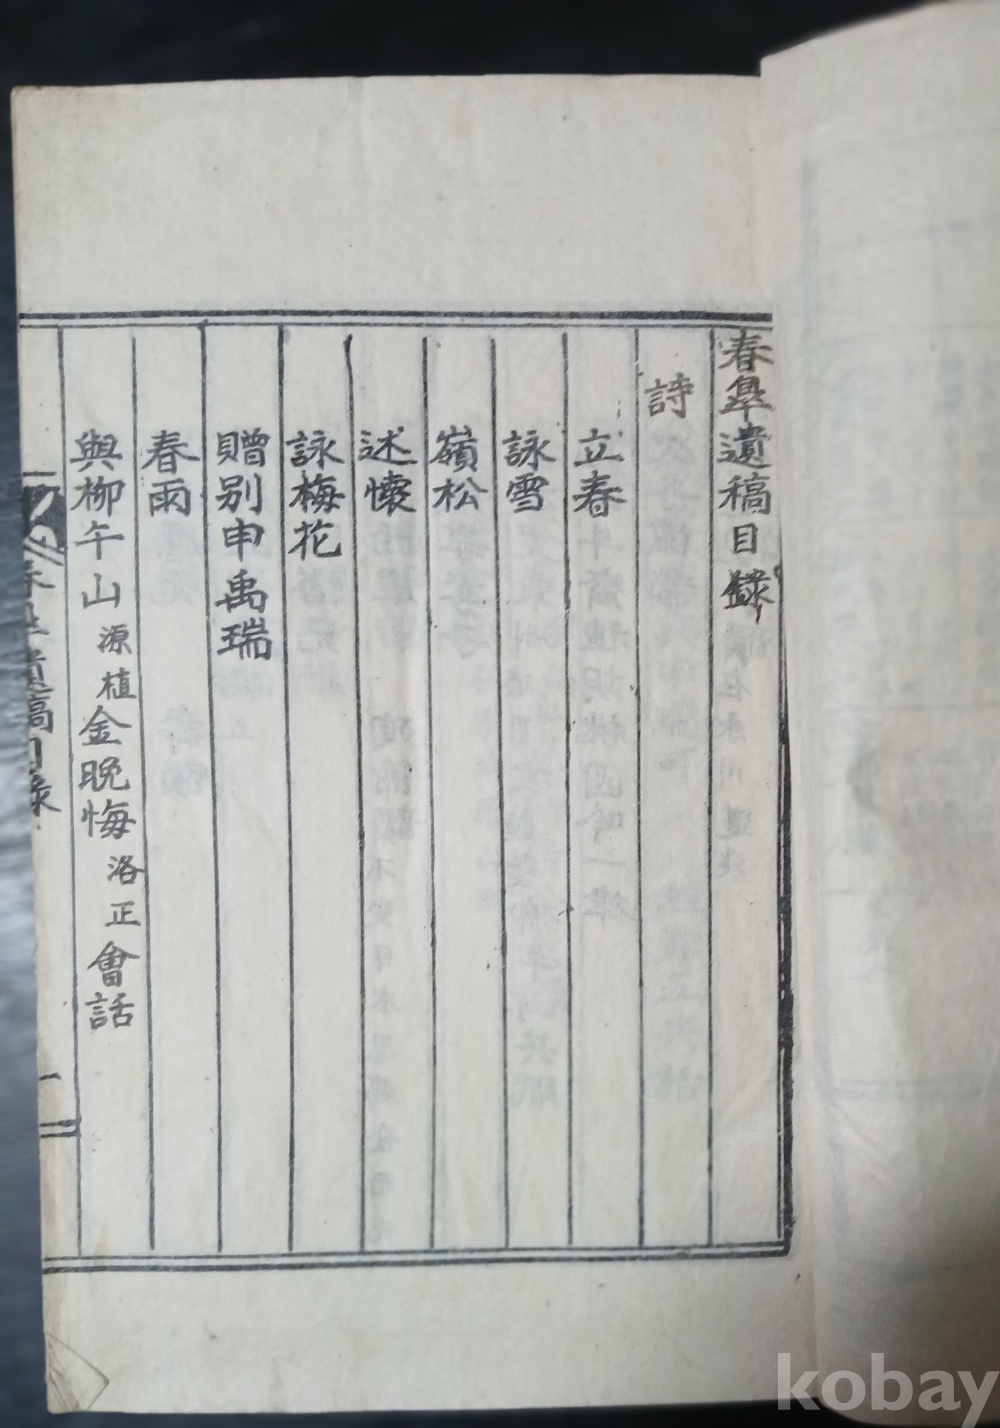 春皐遺稿目錄
詩
立春
詠雪
嶺松
述懷
詠梅花
贈別申禹瑞
春雨
與柳午山源植金晚悔洛正會話
遺稿目錄
一
kobay